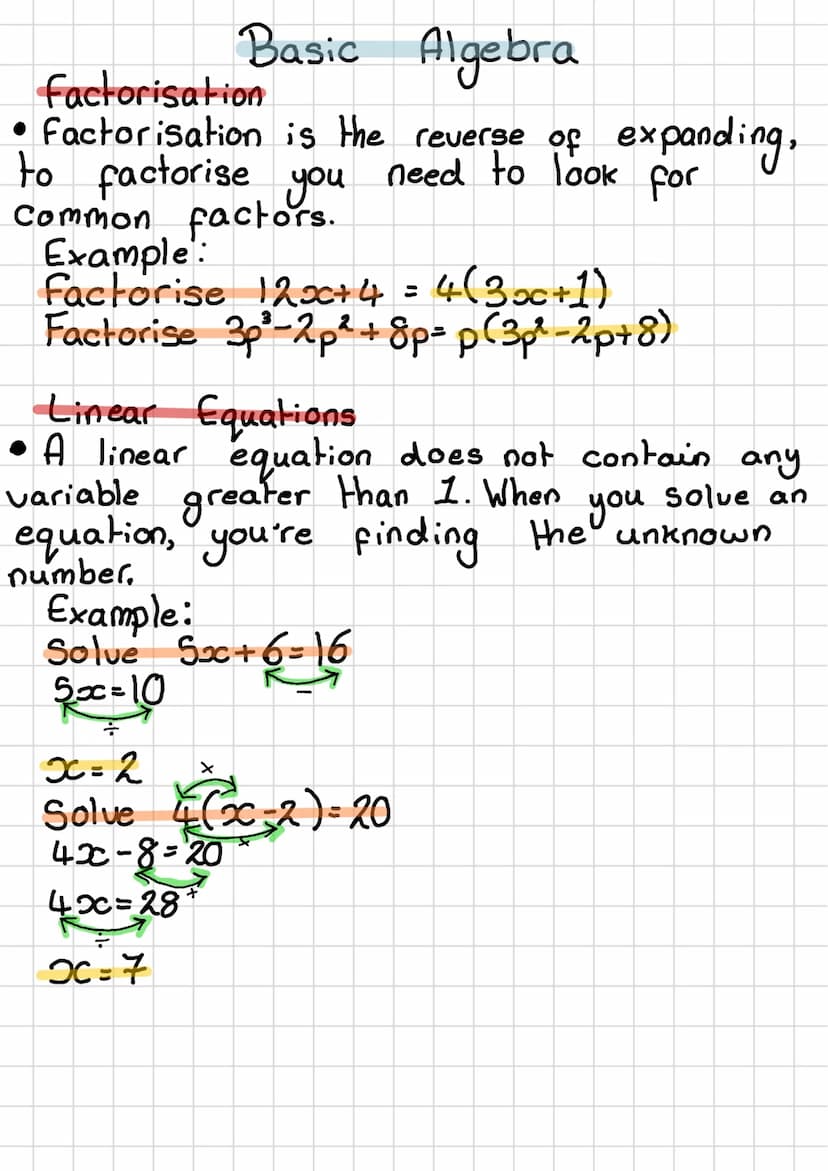 Basic Algebra
Factorisation
• Factorisation is the reverse of expanding,
to factorise you need to look for
common factors.
Example:
Factorise 12x+4 = 4(3x+1)
Factorise 3p³-2p²+8p= p(3p²-2p+8)
Linear Equations
• A linear equation does not contain any
variable greater than 1. When you solve an
equation, you're finding the unknown
number.
Example:
Solve 5x+6=16
−
5x=10
÷
x=2
×
Solve 4(x-2)=20
×
4x-8=20
+
4x=28
÷
x=7